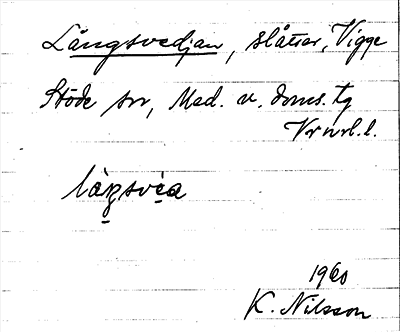 Långsvedjan, slåtter, Vigge
Stöde sn, Med. v. doms. tg
Vrnvl.l.
låŋsvèa
1960
K. Nilsson